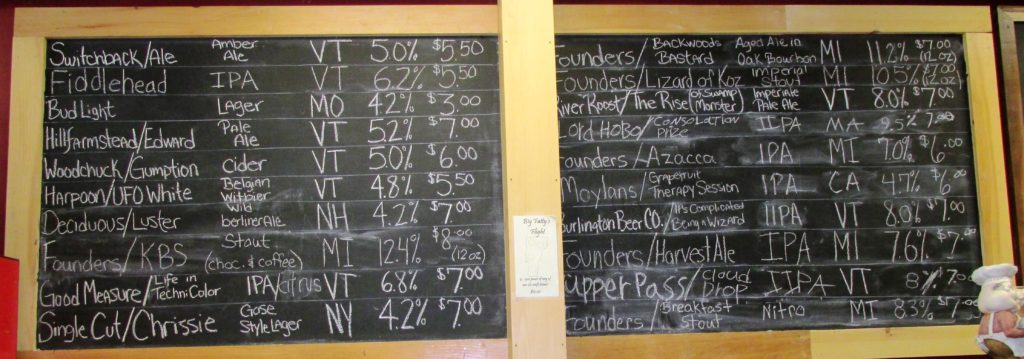 Switchback/Ale Amber Ale VT 5.0% $5.50
Fiddlehead IPA VT 6.2% $5.50
Bud Light Lager MO 4.2% $3.00
Hill Farmstead/Edward Pale Ale VT 5.2% $7.00
Woodchuck/Gumption Cider VT 5.0% $6.00
Harpoon/UFO White Belgian Witbier VT 4.8% $5.50
Deciduous/Luster Wild berliner Ale NH 4.2% $7.00
Founders/KBS Stout (choc. & coffee) MI 12.4% $8.00 (12oz)
Good Measure/Life in TechniColor IPA/citrus VT 6.8% $7.00
Single Cut/Chrissie Gose Style Lager NY 4.2% $7.00
Big Fatty's
Flight
Founders/Backwoods Bastard Aged Ale in Oak Bourbon MI 11.2% $7.00 (12oz)
Founders/Lizard of Koz Imperial Stout MI 10.5% (12oz)
River Roost/The Rise of Swamp Monster Imperiale Pale Ale VT 8.0% $7.00
Lord Hobo/Consolation Prize IIPA MA 9.5% 7.00
Founders/Azacca IPA MI 7.0% $6.00
Moylans/Grapefruit Therapy Session IPA CA 4.7% $6.00
Burlington Beer CO./It's Complicated Being a Wizard IIPA VT 8.0% $7.00
Founders/Harvest Ale IPA MI 7.6% $7.00
Upper Pass/Cloud Drop IIPA VT 8% $7.00
Founders/Breakfast Stout Nitro MI 8.3%